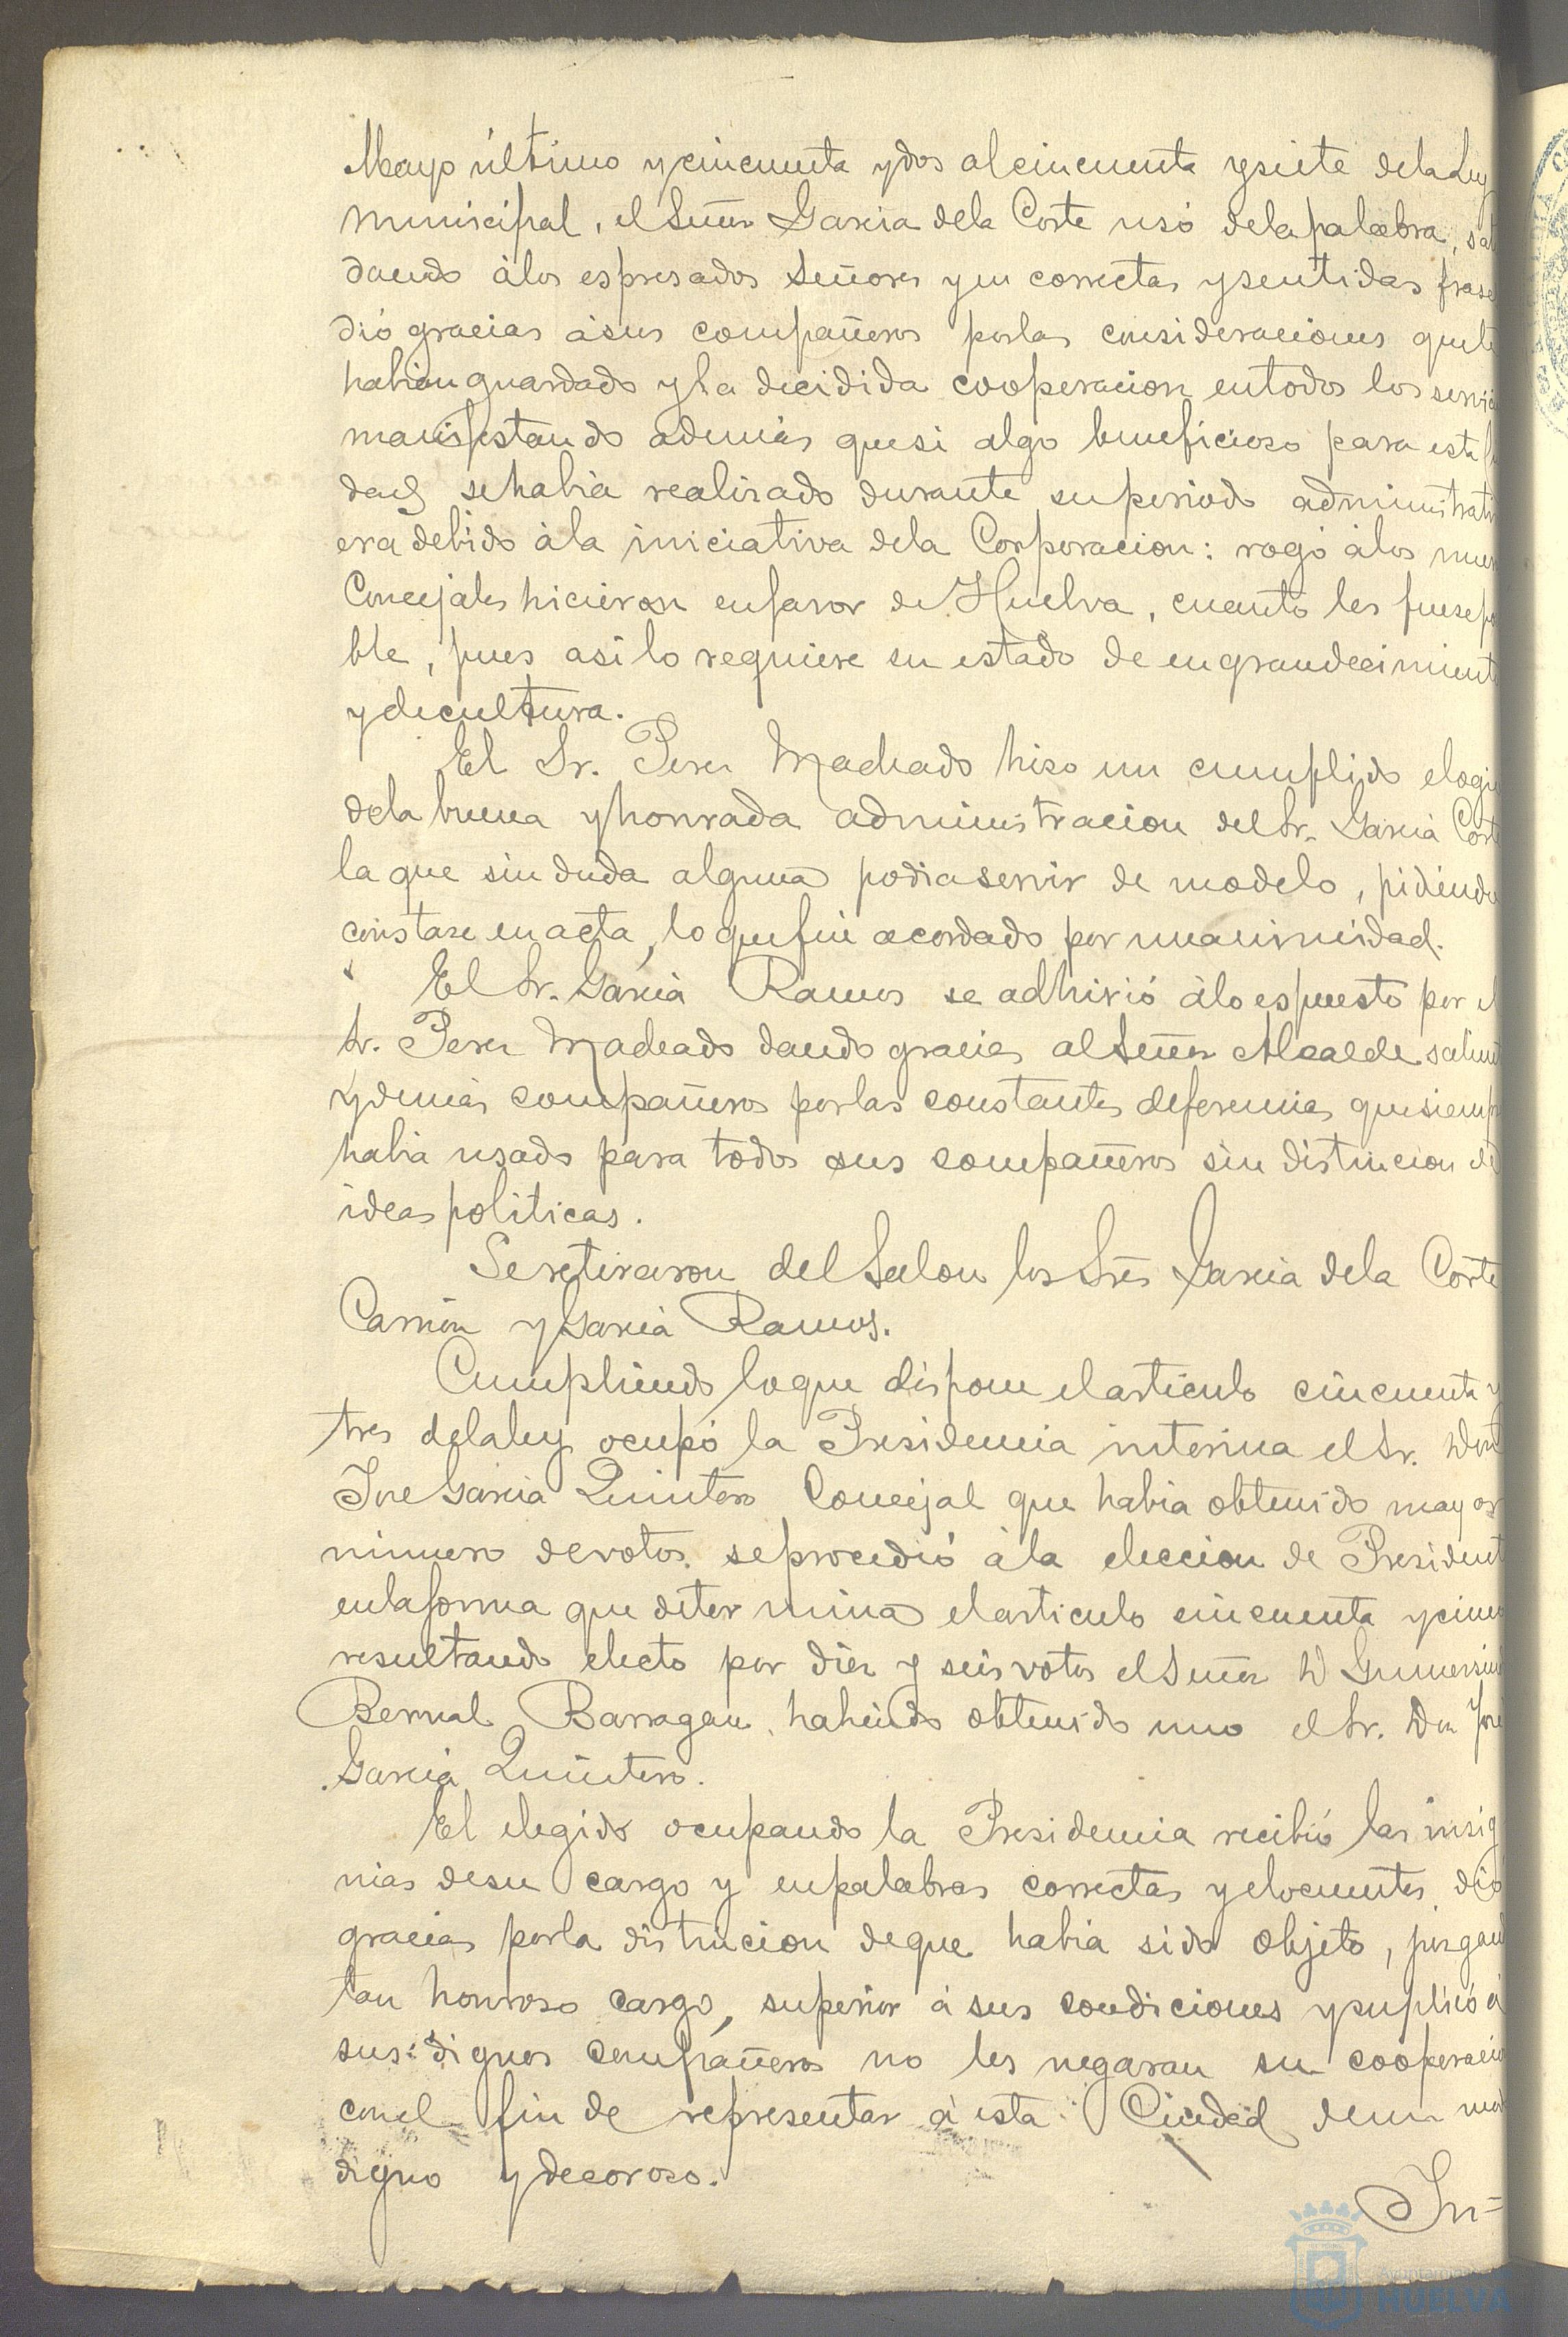 Mayo último y cincuenta y dos al cincuenta y siete de la Ley
Municipal, el Señor Garcia de la Corte usó de la palabra, salu
dando á los espresados Señores y en correctas y sentidas frase
dió gracias á sus compañeros por las consideraciones que le
habian guardado y la decidida cooperacion en todos los servici
manifestando además que si algo beneficioso para esta
dad se habia realizado durante su periodo administrati
era debido á la iniciativa de la Corporacion: rogó á los nuev
Concejales hicieron en favor de Huelva, cuanto les fuese po
ble, pues asi lo requiere su estado de engrandecimient
y de cultura.
El Sr. Perez Machado hizo un cumplido elogi
de la buena y honrada administracion del Sr. Garcia Corte
la que sin duda alguna podia servir de modelo, pidiendo
constase en acta, lo que fué acordado por unanimidad.
El Sr. Garcia Ramos se adhirió á lo espuesto por el
Sr. Perez Machado dando gracias al Señor Alcalde salient
y demás compañeros por las constantes deferencias que siemp
habia usado para todos sus compañeros sin distincion de
ideas politicas.
Se retiraron del Salon los Sres Garcia de la Corte
Carrion y Garcia Ramos.
Cumpliendo lo que dispone el articulo cincuenta y
tres de la ley ocupó la Presidencia interina el Sr. Don
Jose Garcia Quintero Concejal que habia obtenido mayor
número de votos. se procedió á la eleccion de President
en la forma que determina el articulo cincuenta y cinco
resultando electo por diez y seis votos el Señor D Gumersind
Bernal Barragan, habiendo obtenido uno el Sr. Don José
Garcia Quintero.
El elegido ocupando la Presidencia recibió las insig
nias de su cargo y en palabras correctas y elocuentes dió
gracias por la distincion de que habia sido objeto, juzgand
tan honroso cargo, superior á sus condiciones y suplicó á
sus dignos compañeros no les negaran su cooperacio
con el fin de representar á esta Ciudad de un mod
digno y decoroso.
In=
Ayuntamiento
HUELVA